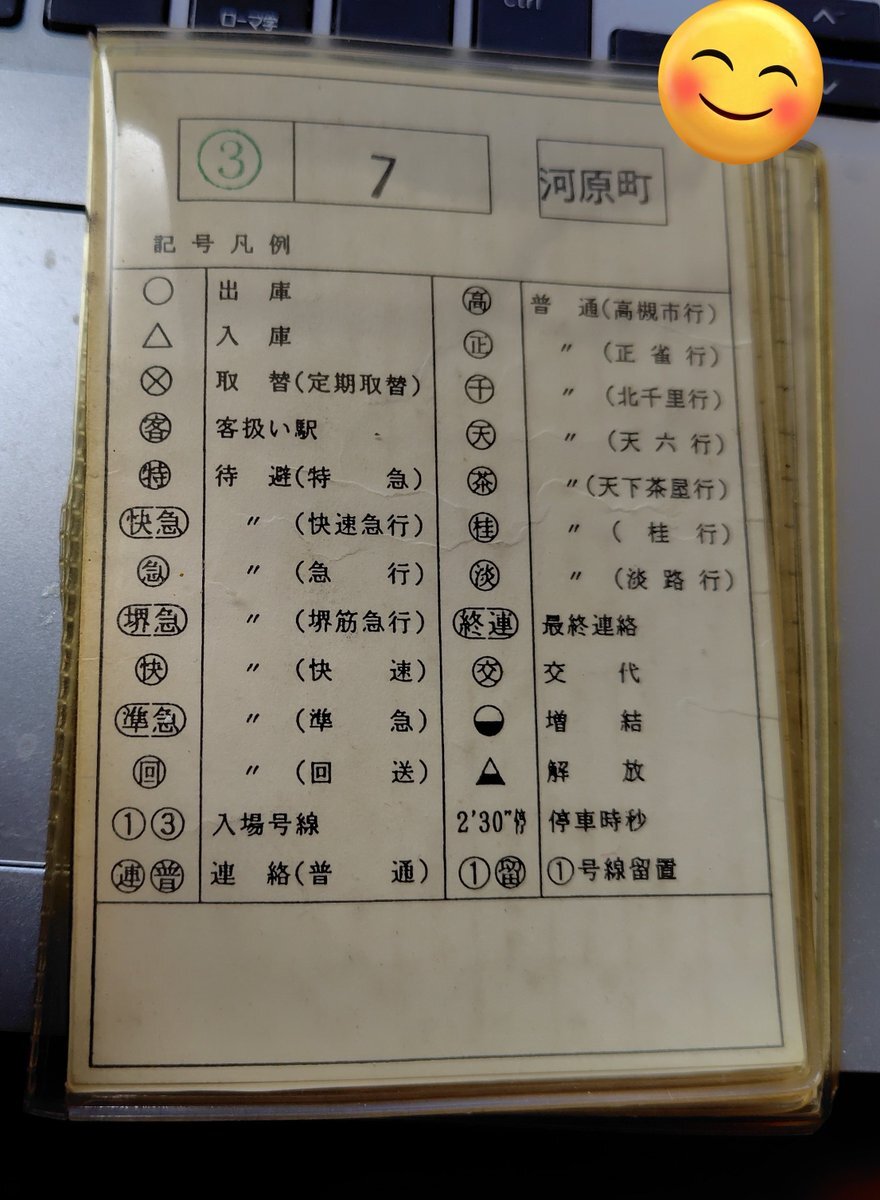 ローマ字
Ctrl
③ 7 河原町
記号凡例
○ 出 庫
△ 入 庫
⊗ 取 替(定期取替)
客 客扱い駅
特 待 避(特 急)
快急 〃 (快速急行)
急 〃 (急 行)
堺急 〃 (堺筋急行)
快 〃 (快 速)
準急 〃 (準 急)
回 〃 (回 送)
①③ 入場号線
連普 連 絡(普 通)
高 普 通(高槻市行)
正 〃 (正雀行)
千 〃 (北千里行)
天 〃 (天六行)
茶 〃(天下茶屋行)
桂 〃 ( 桂 行)
淡 〃 (淡路行)
終連 最終連絡
交 交 代
増 結
解 放
2'30"停 停車時秒
①留 ①号線留置